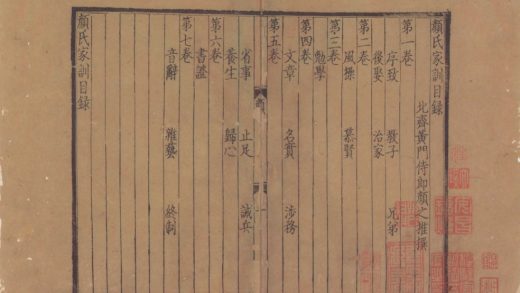 顏氏家訓目録
北齊黃門侍郎顏之推撰
第一卷
序致 教子 兄弟
後娶 治家
第二卷
風操 慕賢
第三卷
勉學
第四卷
文章 名實 涉務
第五卷
省事 止足 誡兵
養生 歸心
第六卷
書證
第七卷
音辭 雜藝 終制
顏氏家訓目録